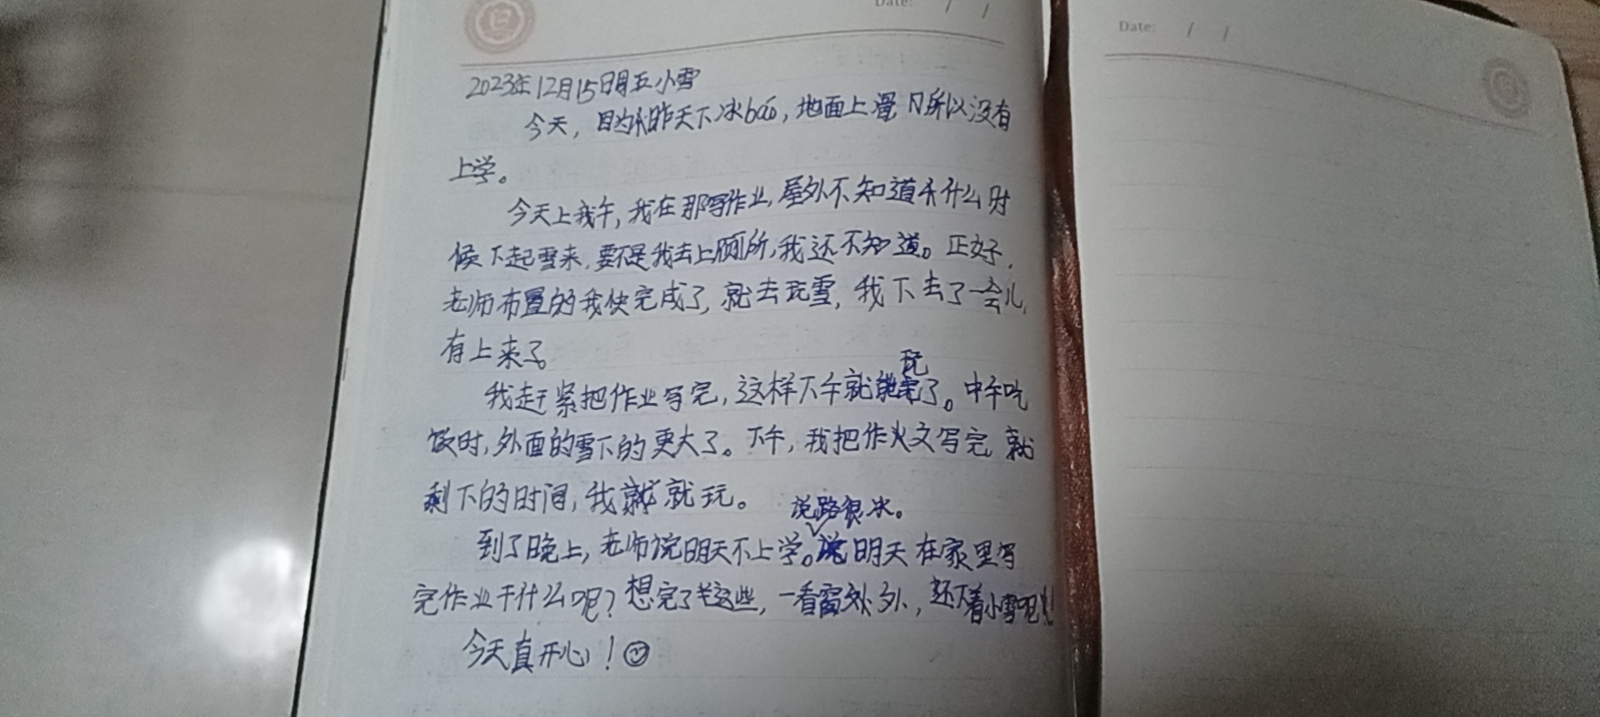 Date: / /
Date: / /
2023年12月15日周五小雪
今天，因为昨天下冰báo，地面上湿 所以没有
上学。
今天上午，我在那写作业，屋外不知道什么时
候下起雪来，要不是我去上厕所，我还不知道。正好，
老师布置的我快完成了，就去玩雪，我下去了一会儿，
有上来了。
我赶紧把作业写完，这样下午就能玩了。中午吃
饭时，外面的雪下的更大了。下午，我把作文写完 就
剩下的时间，我就玩。
说路很冰。
到了晚上，老师说明天不上学。明天在家里写
完作业干什么呢？想完了这些，一看窗外，还下着小雪呢！
今天真开心！☺